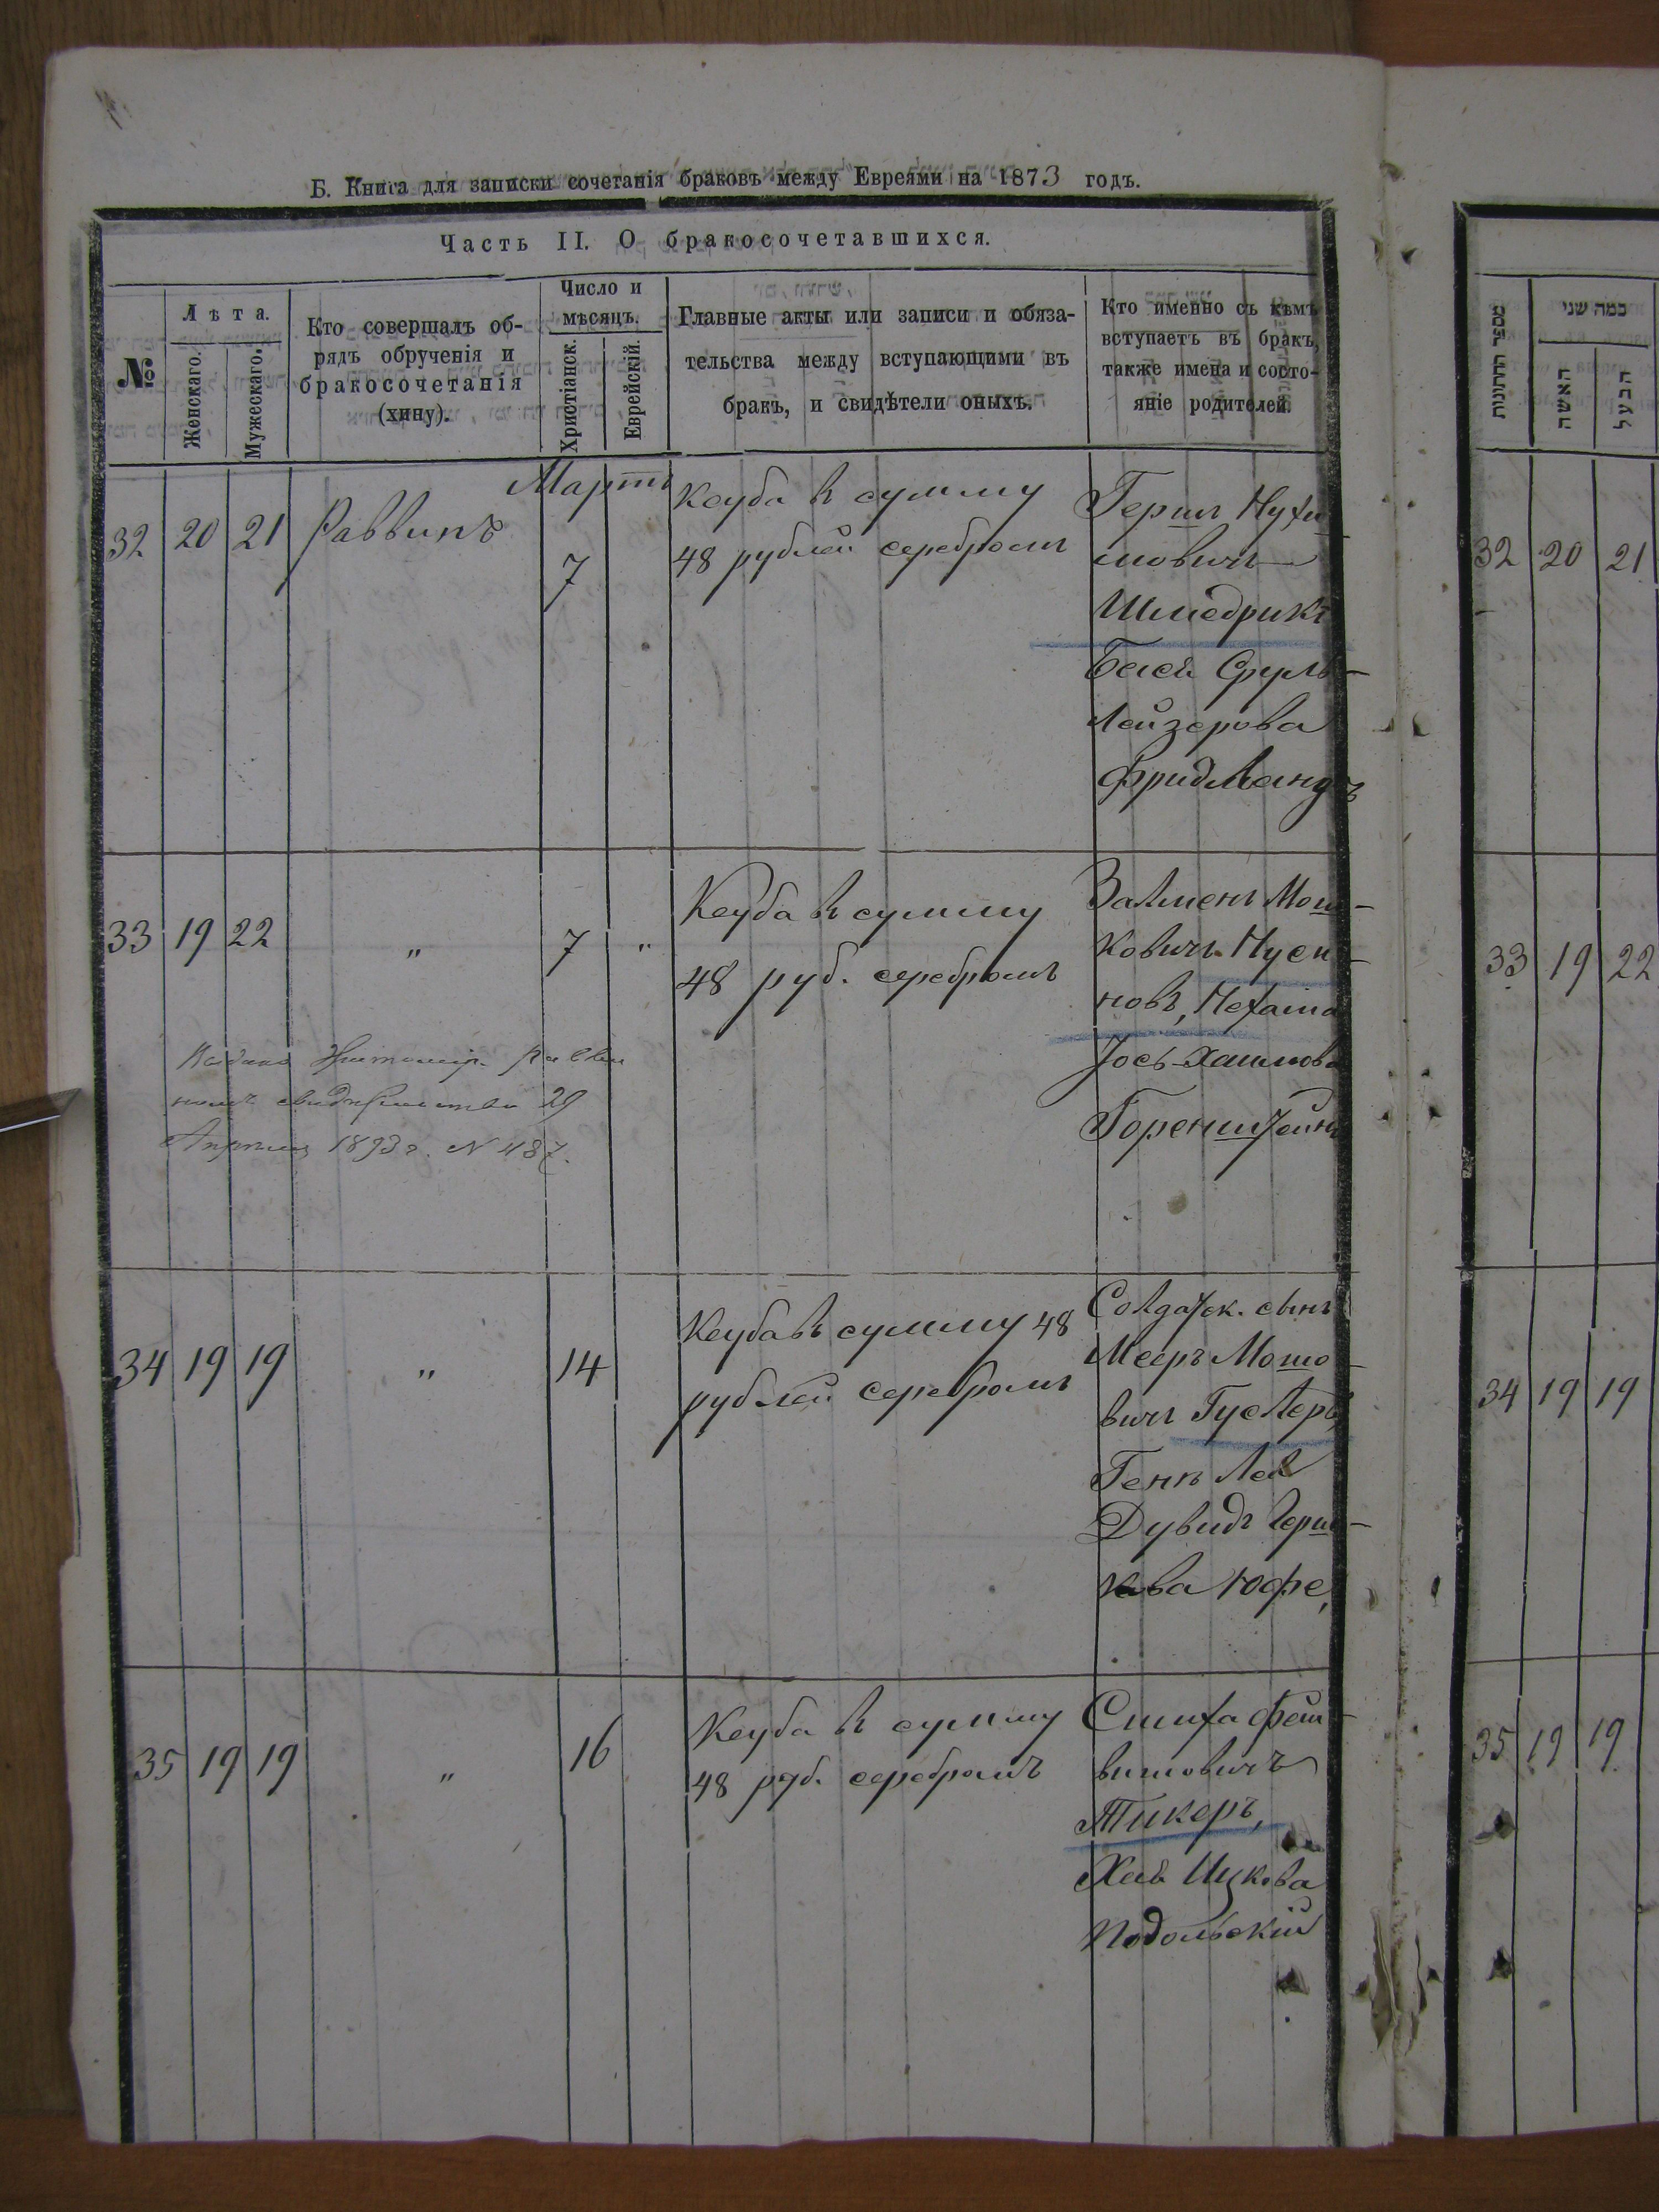 Б. Книга для записки сочетанія браковъ между Евреями на 1873 годъ.
Часть II. О бракосочетавшихся.
№
Лѣта.
Женскаго.
Мужескаго.
Кто совершалъ об-
рядъ обрученія и
бракосочетанія
(хину).
Число и
мѣсяцъ.
Христіанск.
Еврейскій.
Главные акты или записи и обяза-
тельства между вступающими въ
бракъ, и свидѣтели оныхъ.
Кто именно съ кѣмъ
вступаетъ въ бракъ,
также имена и состо-
яніе родителей.
Мартъ
32 20 21 Раввинъ 7
Кеуба въ сумму
48 рублей серебромъ
Гершъ Нухи-
мовичъ
Шмедрикъ
Бася Сруль-
Лейзерова
Фридландъ
33 19 22 " 7 "
Кеуба въ сумму
48 руб. серебромъ
Залменъ Мош-
ковичъ Нуси-
новъ, Нехама
Іось-Хаимова
Горенштейнъ
Выдано Житомір. Равви
номъ свидѣтельство 29
Апрѣля 1893 г. N 487.
34 19 19 " 14
Кеуба въ сумму 48
рублей серебромъ
Солдатск. сынъ
Мееръ Мошо-
вичъ Гуслеръ,
Генъ Лея
Дувидъ Герш-
кова Юфе,
35 19 19 " 16
Кеуба въ сумму
48 руб. серебромъ
Симха Фай-
вишовичъ
Тикеръ,
Хая Ицкова
Подольскій
מספר החתונות
כמה שני
האשה
הבעל
32 20 21
33 19 22
34 19 19
35 19 19